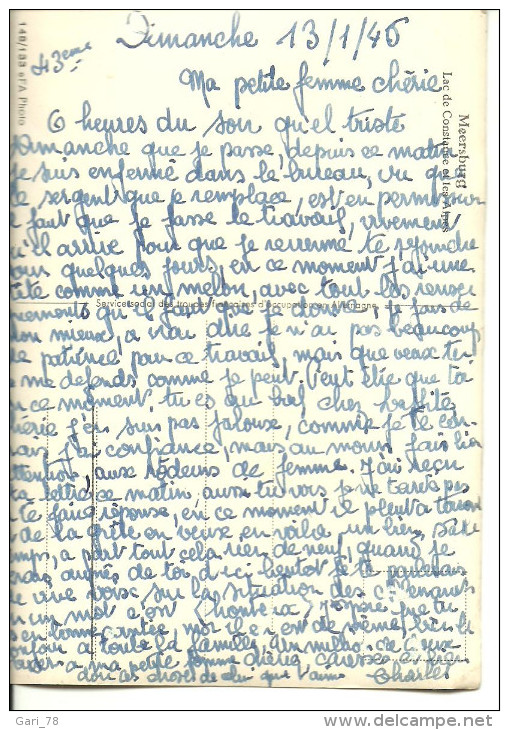 148/183 SFA Photo
43ème
Dimanche 13/1/46
Ma petite femme chérie
Meersburg
Lac de Constance et les Alpes
6 heures du soir qu'el triste
Dimanche que je passe, depuis ce matin
je suis enfermé dans le bureau, vu que
le sergent que je remplace, est en permission
il faut que je fasse le travail, vivement
qu'il arrive pour que je revienne te rejoindre
pour quelques jours, en ce moment j'ai une
tête comme un melon, avec tout les rensei
Service social des troupes françaises d'occupation en Allemagne
gnements qu'il faut que je donne, je fais de
mon mieux, a vrai dire je n'ai pas beaucoup
de patience pour ce travail, mais que veux tu
je me defends comme je peut. Peut être que toi
en ce moment, tu es au bal, cher
chérie j'en suis pas jaloux, comme je te con
nais j'ai confiance, mais au moins fais bien
attention, aux rôdeurs de femme. J'ai reçu
ta lettre ce matin, aussi tu vois je ne tarde pas
a te faire réponse, en ce moment il pleut a
de la grêle en veux en voila un bien sale
temps, a part tout cela rien de neuf, quand je
serais auprès de toi, d'ici bientot je te
de vive voix sur la situation des
en un mot c'est (honteux) J'espère que tu
es en bonne santée, moi il en est de même, bien le
bonjour a toute la famille, un
a ma petite femme chérie, caresse
de celui que t'aime Charles
Gari_78
www.delcampe.net